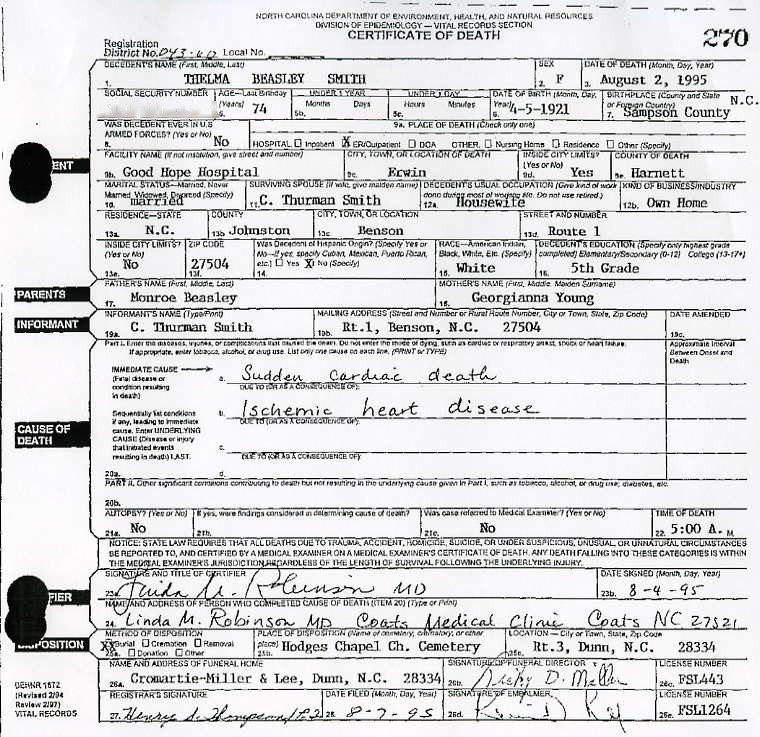 NORTH CAROLINA DEPARTMENT OF ENVIRONMENT, HEALTH, AND NATURAL RESOURCES
DIVISION OF EPIDEMIOLOGY — VITAL RECORDS SECTION
CERTIFICATE OF DEATH
270
Registration
District No. 043-60 Local No.
DECEDENT'S NAME (First, Middle, Last) SEX DATE OF DEATH (Month, Day, Year)
1. THELMA BEASLEY SMITH 2. F 3. August 2, 1995
SOCIAL SECURITY NUMBER AGE—Last Birthday UNDER 1 YEAR UNDER 1 DAY DATE OF BIRTH (Month, Day, BIRTHPLACE (County and State N.C.
(Years) 74 Months Days Hours Minutes Year) 4-5-1921 or Foreign Country)
5b. 5c. 6. 7. Sampson County
WAS DECEDENT EVER IN U.S 9a. PLACE OF DEATH (Check only one)
ARMED FORCES? (Yes or No)
8. No HOSPITAL Inpatient X ER/Outpatient DOA OTHER: Nursing Home Residence Other (Specify)
FACILITY NAME (If not institution, give street and number) CITY, TOWN, OR LOCATION OF DEATH INSIDE CITY LIMITS? COUNTY OF DEATH
ENT 9b. Good Hope Hospital 9c. Erwin 9d. Yes 9e. Harnett
MARITAL STATUS—Married, Never SURVIVING SPOUSE (If wife, give maiden name) DECEDENT'S USUAL OCCUPATION (Give kind of work KIND OF BUSINESS/INDUSTRY
Married, Widowed, Divorced (Specify) done during most of working life. Do not use retired.)
10. married 11. C. Thurman Smith 12a. Housewife 12b. Own Home
RESIDENCE—STATE COUNTY CITY, TOWN, OR LOCATION STREET AND NUMBER
13a. N.C. 13b Johnston 13c. Benson 13d. Route 1
INSIDE CITY LIMITS? ZIP CODE Was Decedent of Hispanic Origin? (Specify Yes or RACE—American Indian, DECEDENT'S EDUCATION (Specify only highest grade
(Yes or No) No—If yes, specify Cuban, Mexican, Puerto Rican, Black, White, Etc. (Specify) completed) Elementary/Secondary (0-12) College (13-17+)
No 27504 etc.) Yes X No (Specify) White 5th Grade
13e. 13f. 14. 15. 16.
FATHER'S NAME (First, Middle, Last) MOTHER'S NAME (First, Middle, Maiden Surname)
PARENTS 17. Monroe Beasley 18. Georgianna Young
INFORMANT'S NAME (Type/Print) MAILING ADDRESS (Street and Number or Rural Route Number, City or Town, State, Zip Code) DATE AMENDED
INFORMANT 19a. C. Thurman Smith 19b. Rt.1, Benson, N.C. 27504 19c.
Part I. Enter the diseases, injuries, or complications that caused the death. Do not enter the mode of dying, such as cardiac or respiratory arrest, shock or heart failure. Approximate Interval
If appropriate, enter tobacco, alcohol, or drug use. List only one cause on each line. (PRINT or TYPE) Between Onset and
Death
IMMEDIATE CAUSE a. Sudden cardiac death
(Final disease or DUE TO (OR AS A CONSEQUENCE OF):
condition resulting
in death)
b. Ischemic heart disease
Sequentially list conditions DUE TO (OR AS A CONSEQUENCE OF):
if any, leading to immediate
CAUSE OF DEATH
cause. Enter UNDERLYING c.
CAUSE (Disease or injury DUE TO (OR AS A CONSEQUENCE OF):
that initiated events
resulting in death) LAST.
20a. d.
PART II. Other significant conditions contributing to death but not resulting in the underlying cause given in Part I, such as tobacco, alcohol, or drug use; diabetes, etc.
20b.
AUTOPSY? (Yes or No) If yes, were findings considered in determining cause of death? Was case referred to Medical Examiner? (Yes or No) TIME OF DEATH
21a. No 21b. 21c. No 22. 5:00 A. M
NOTICE: STATE LAW REQUIRES THAT ALL DEATHS DUE TO TRAUMA, ACCIDENT, HOMICIDE, SUICIDE, OR UNDER SUSPICIOUS, UNUSUAL, OR UNNATURAL CIRCUMSTANCES
BE REPORTED TO, AND CERTIFIED BY A MEDICAL EXAMINER ON A MEDICAL EXAMINER'S CERTIFICATE OF DEATH. ANY DEATH FALLING INTO THESE CATEGORIES IS WITHIN
THE MEDICAL EXAMINER'S JURISDICTION REGARDLESS OF THE LENGTH OF SURVIVAL FOLLOWING THE UNDERLYING INJURY.
SIGNATURE AND TITLE OF CERTIFIER DATE SIGNED (Month, Day, Year)
FIER 23a. Linda M. Robinson MD 23b. 8-4-95
NAME AND ADDRESS OF PERSON WHO COMPLETED CAUSE OF DEATH (ITEM 20) (Type or Print)
24. Linda M. Robinson MD Coats Medical Clinic Coats NC 27521
METHOD OF DISPOSITION PLACE OF DISPOSITION (Name of cemetery, crematory, or other LOCATION — City or Town, State, Zip Code
DISPOSITION XX Burial Cremation Removal place)
25a. Donation Other 25b. Hodges Chapel Ch. Cemetery 25c. Rt.3, Dunn, N.C. 28334
NAME AND ADDRESS OF FUNERAL HOME SIGNATURE OF FUNERAL DIRECTOR LICENSE NUMBER
26a. Cromartie-Miller & Lee, Dunn, N.C. 28334 26b. D. Miller 26c. FSL443
REGISTRAR'S SIGNATURE DATE FILED (Month, Day, Year) SIGNATURE OF EMBALMER LICENSE NUMBER
27. Henry S. Thompson 28. 8-7-95 26d. 26e. FSL1264
DEHNR 1872
(Revised 2/94
Review 2/97)
VITAL RECORDS